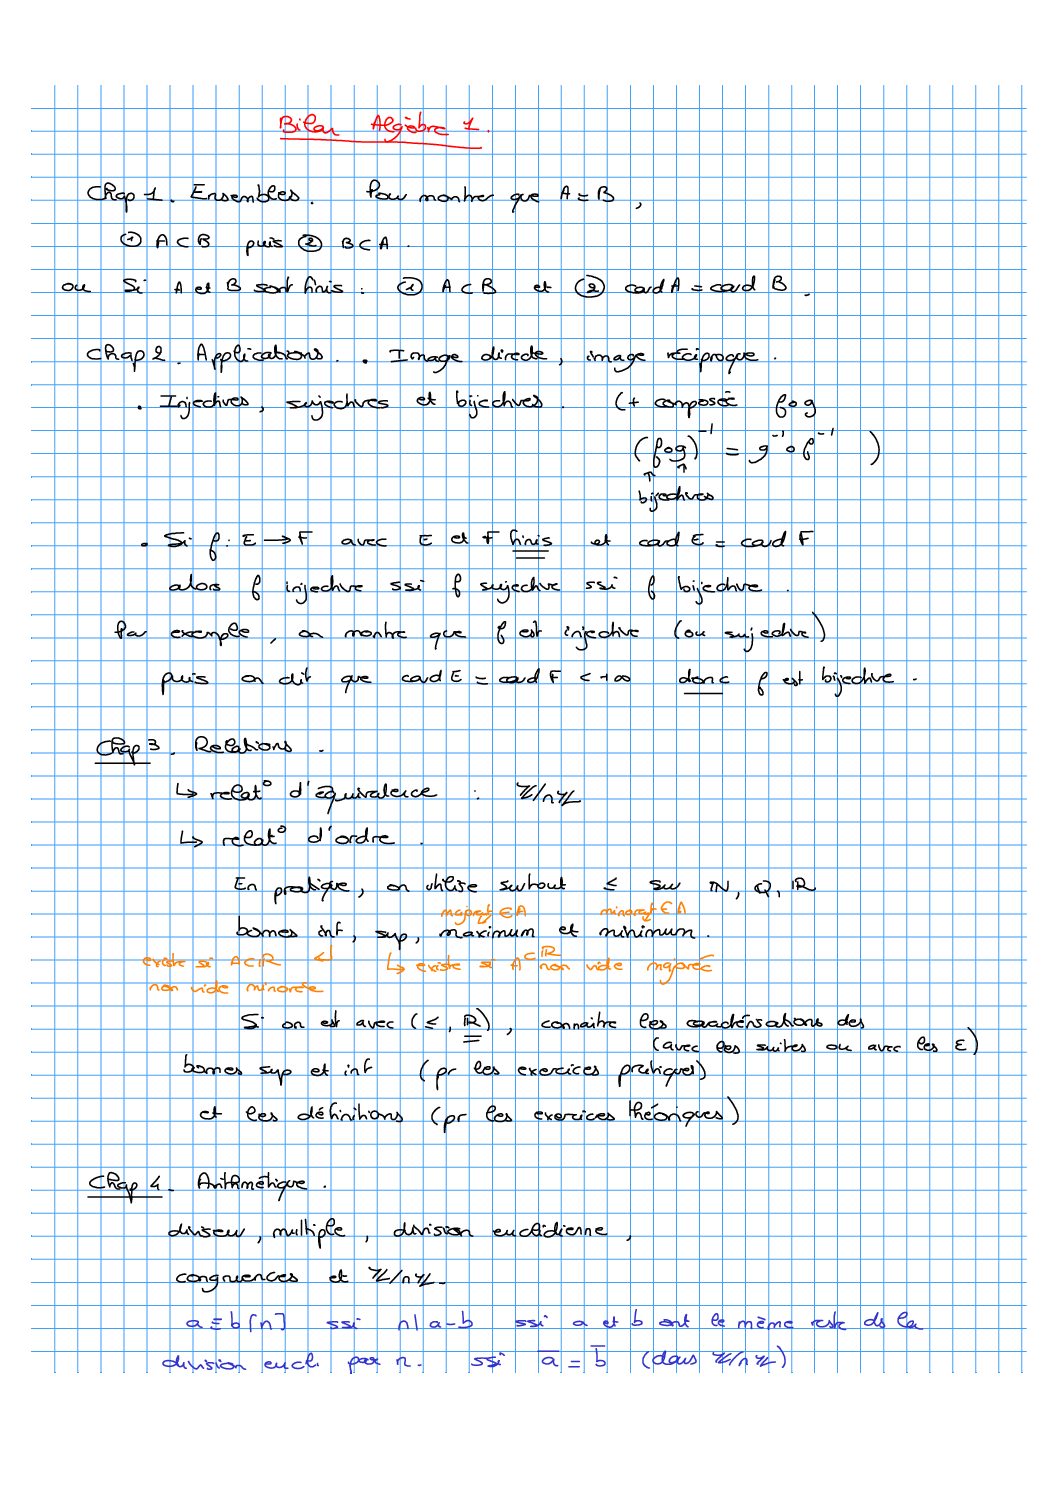 Bilan Algèbre 1.
Chap 1. Ensembles. Pour montrer que A = B,
① A ⊂ B puis ② B ⊂ A.
ou Si A et B sont finis : ① A ⊂ B et ② card A = card B.
Chap 2. Applications. • Image directe, image réciproque.
• Injectives, surjectives et bijectives. (+ composée f∘g
(f∘g)⁻¹ = g⁻¹∘f⁻¹ )
↑ ↑
bijectives
• Si f : E → F avec E et F finis et card E = card F
alors f injective ssi f surjective ssi f bijective.
Par exemple, on montre que f est injective (ou surjective)
puis on dit que card E = card F < +∞ donc f est bijective.
Chap 3. Relations.
↳ relat° d'équivalence : ℤ/nℤ
↳ relat° d'ordre.
En pratique, on utilise surtout ≤ sur ℕ, ℚ, ℝ
majorant ∈ A minorant ∈ A
bornes inf, sup, maximum et minimum.
existe si A⊂ℝ ↵ ↳ existe si A⊂ℝ non vide majorée
non vide minorée
Si on est avec (≤, ℝ), connaitre les caractérisations des
(avec les suites ou avec les ε)
bornes sup et inf (pr les exercices pratiques)
et les définitions (pr les exercices théoriques)
Chap 4. Arithmétique.
diviseur, multiple, division euclidienne,
congruences et ℤ/nℤ.
a ≡ b [n] ssi n | a-b ssi a et b ont le même reste ds la
division eucli. par n. ssi a̅ = b̅ (dans ℤ/nℤ)